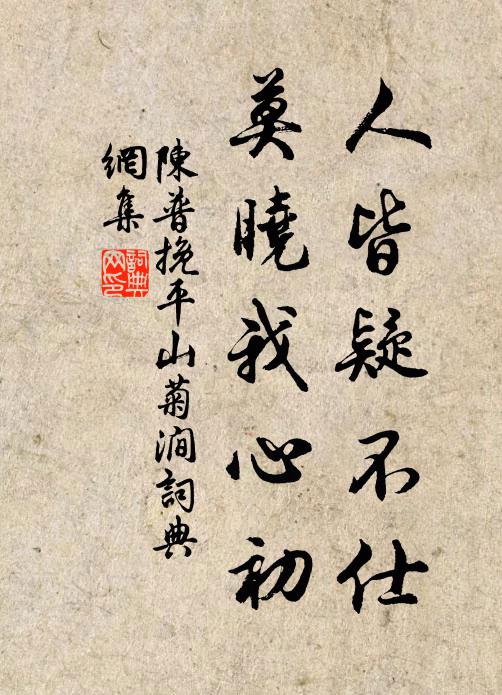 人皆疑不仕
莫曉我心初
陳普挽平山菊澗詞典
網集
詞典
网印